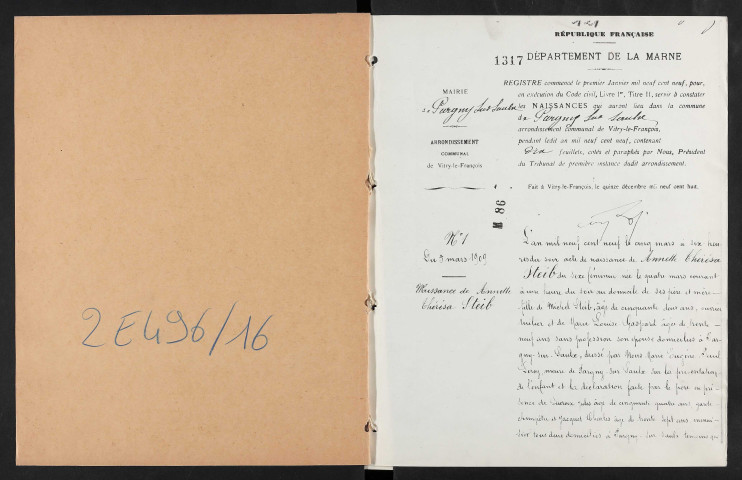 2E496/16
RÉPUBLIQUE FRANÇAISE
1317 DÉPARTEMENT DE LA MARNE
REGISTRE commencé le premier Janvier mil neuf cent neuf, pour,
en exécution du Code civil, Livre Ier, Titre II, servir à constater
les NAISSANCES qui auront lieu dans la commune
de Pargny sur Saulx
arrondissement communal de Vitry-le-François,
pendant ledit an mil neuf cent neuf, contenant
dix feuillets, cotés et paraphés par Nous, Président
du Tribunal de première instance dudit arrondissement.
Fait à Vitry-le-François, le quinze décembre mil neuf cent huit.
MAIRIE
de Pargny sur Saulx
ARRONDISSEMENT
COMMUNAL
de Vitry-le-François
M 86
N° 1
Du mars 1909
Naissance de Annette
Thérésa Steib
L'an mil neuf cent neuf le cinq mars a six heu
res du soir acte de naissance de Annette Thérésa
Steib du sexe féminin née le quatre mars courant
à une heure du soir au domicile de ses père et mère
fille de Steib, âgé de cinquante deux ans,
et de Marie Louise Gaspard âgée de trente
neuf ans sans profession son épouse domiciliés à Par
gny-sur-Saulx, dressé par Nous Marie Eugène Paul
Leroy, maire de Pargny-sur-Saulx sur la présentation
de l'enfant et la déclaration faite par le père en pré
sence de Jules âgé de cinquante quatre ans garde
champêtre et Jacquot Charles âgé de trente sept ans
tous deux domiciliés à Pargny-sur-Saulx témoins qui